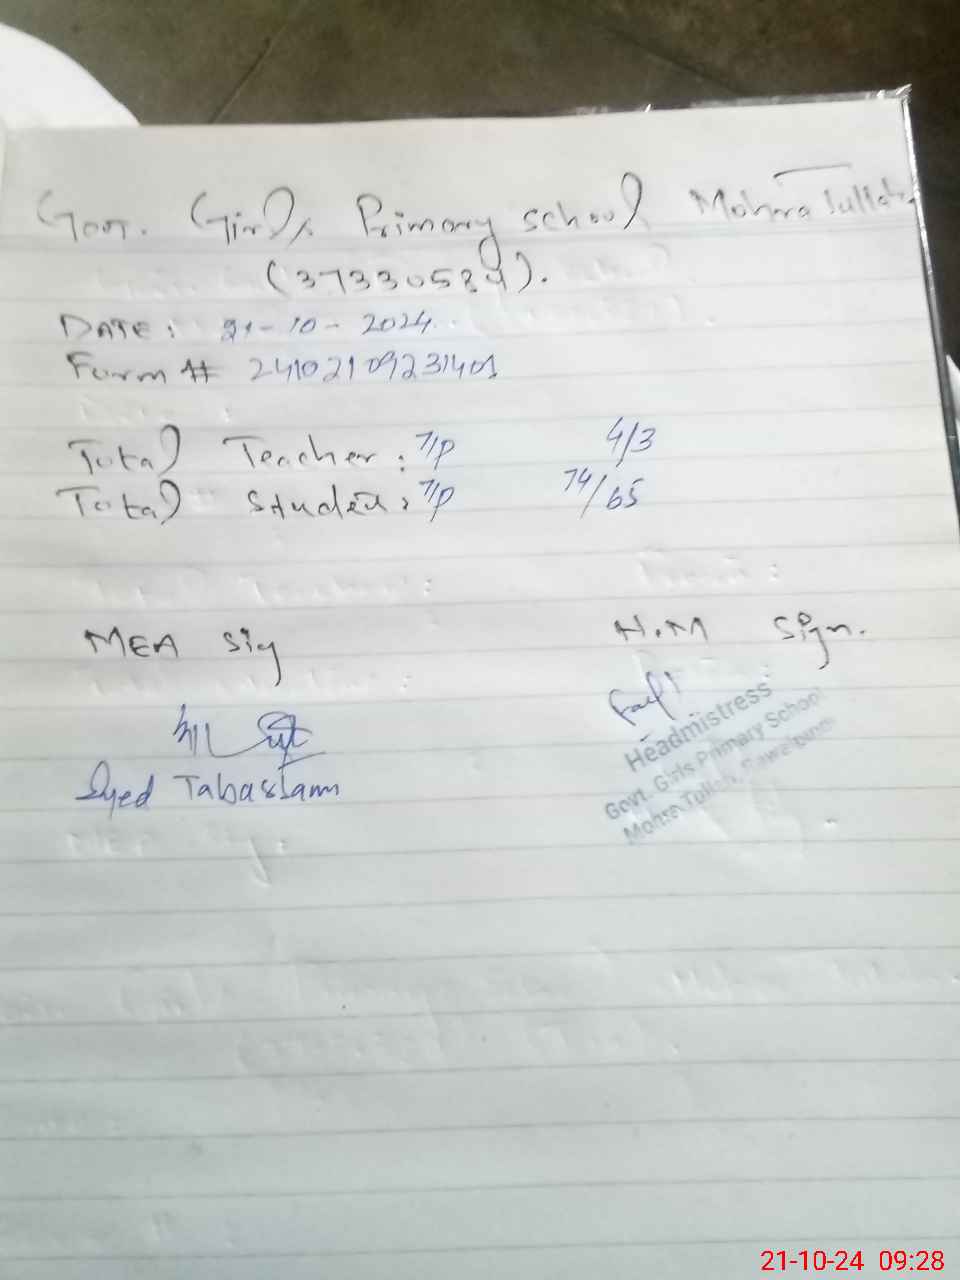 Govt. Girls Primary school Mohra Tullah
(37330584).
DATE: 21-10-2024.
Form # 24102109231401
Total Teacher: T/P 4/3
Total Student: T/P 74/65
MEA Sig H.M Sign.
Syed Tabassam
Headmistress
Govt. Girls Primary School
Mohra Tullah, Rawalpindi
21-10-24 09:28